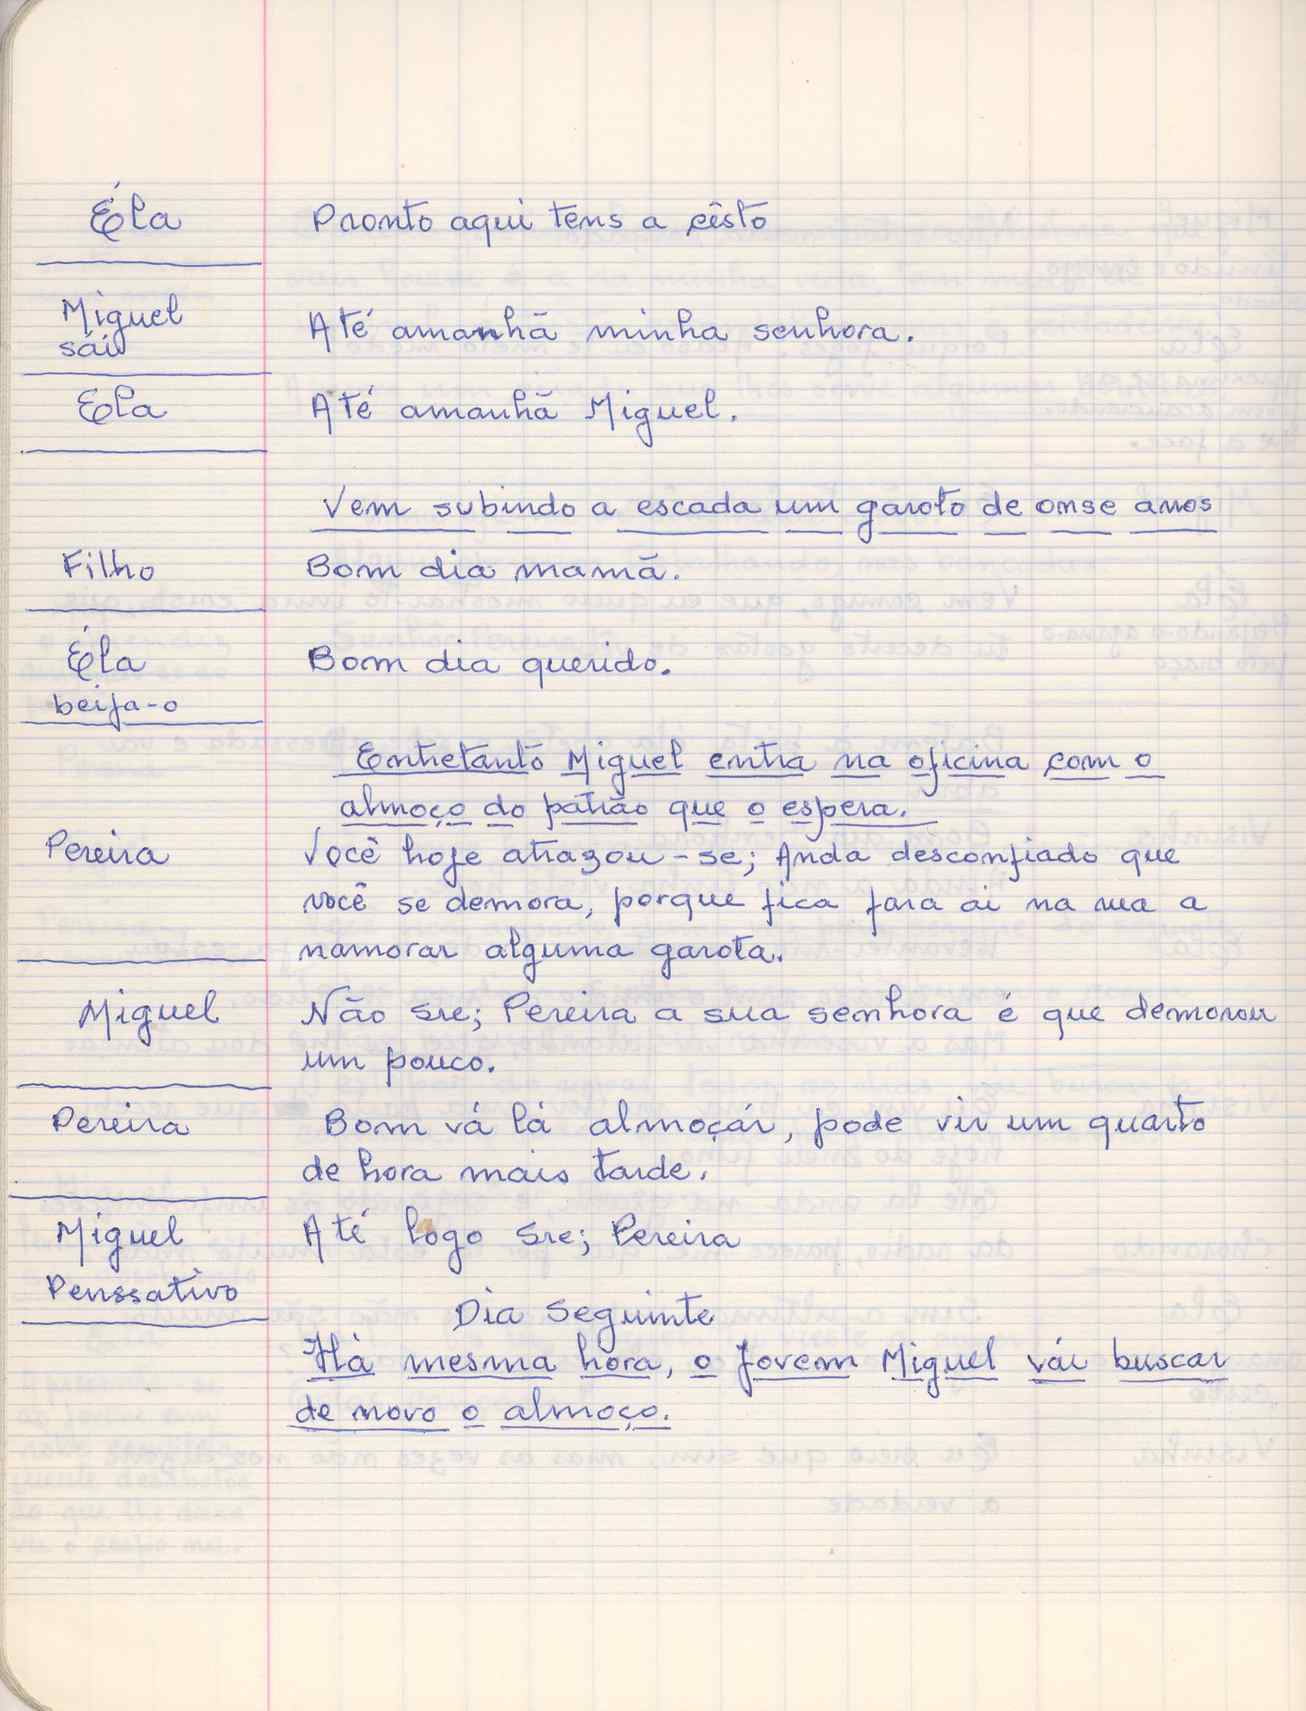 Éla Pronto aqui tens a cêsto
Miguel
sái Até amanhã minha senhora.
Ela Até amanhã Miguel.
Vem subindo a escada um garoto de onse anos
Filho Bom dia mamã.
Éla Bom dia querido.
beija-o
Entretanto Miguel entra na oficina com o
almoço do patrão que o espera.
Pereira Você hoje atrazou-se; Anda desconfiado que
você se demora, porque fica fara ai na rua a
namorar alguma garota.
Miguel Não Sre; Pereira a sua senhora é que demorou
um pouco.
Pereira Bom vá lá almoçár, pode vir um quarto
de hora mais tarde.
Miguel Até logo Sre; Pereira
Penssativo
Dia Seguinte
Há mesma hora, o Jovem Miguel vái buscar
de novo o almoço.